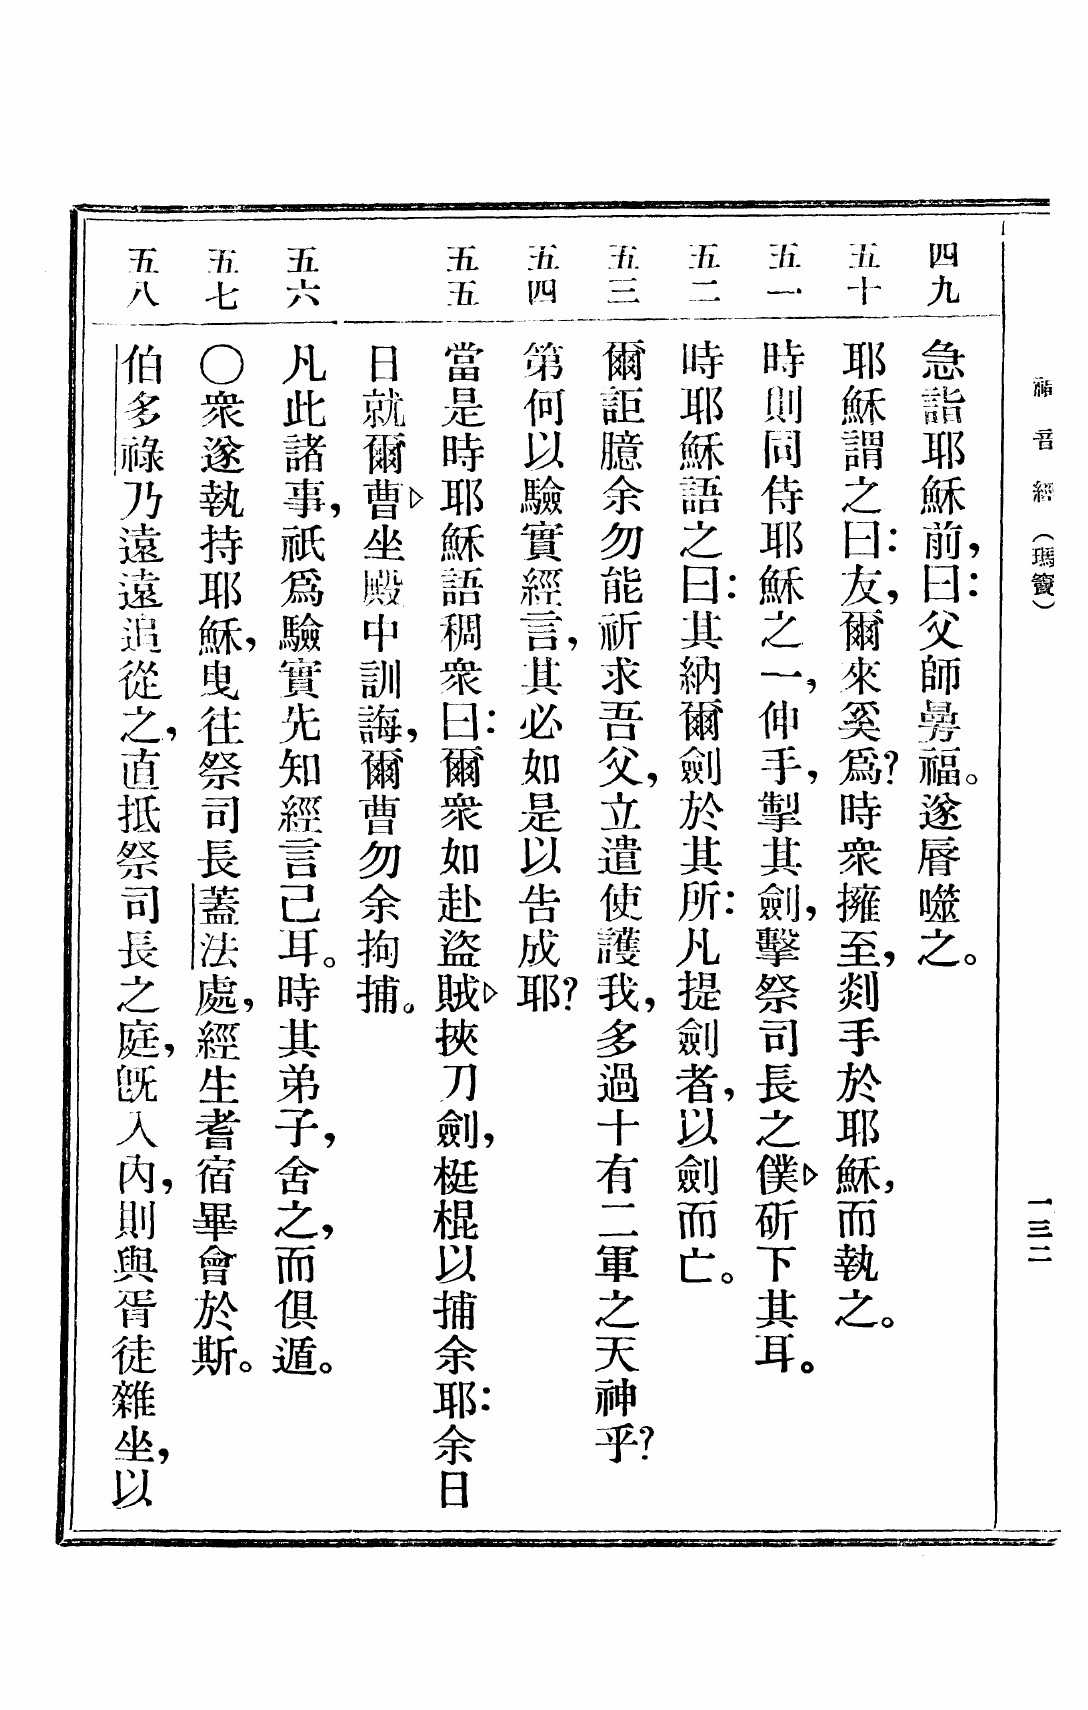 福音經（瑪竇）
一三二
四九 急詣耶穌前，曰：父師㫄福。遂脣噬之。
五十 耶穌謂之曰：友，爾來奚爲？時衆擁至，剡手於耶穌，而執之。
五一 時則同侍耶穌之一，伸手，掣其劍，擊祭司長之僕▷斫下其耳。
五二 時耶穌語之曰：其納爾劍於其所：凡提劍者，以劍而亡。
五三 爾詎臆余勿能祈求吾父，立遣使護我，多過十有二軍之天神乎？
五四 第何以驗實經言，其必如是以告成耶？
五五 當是時耶穌語稠衆曰：爾衆如赴盜賊▷挾刀劍，梃棍以捕余耶：余日
日就爾曹▷坐殿中訓誨，爾曹勿余拘捕。
五六 凡此諸事，祇爲驗實先知經言己耳。時其弟子，舍之，而俱遁。
五七 〇衆遂執持耶穌，曳往祭司長蓋法處，經生耆宿畢會於斯。
五八 伯多祿乃遠遠追從之，直抵祭司長之庭，旣入內，則與胥徒雜坐，以